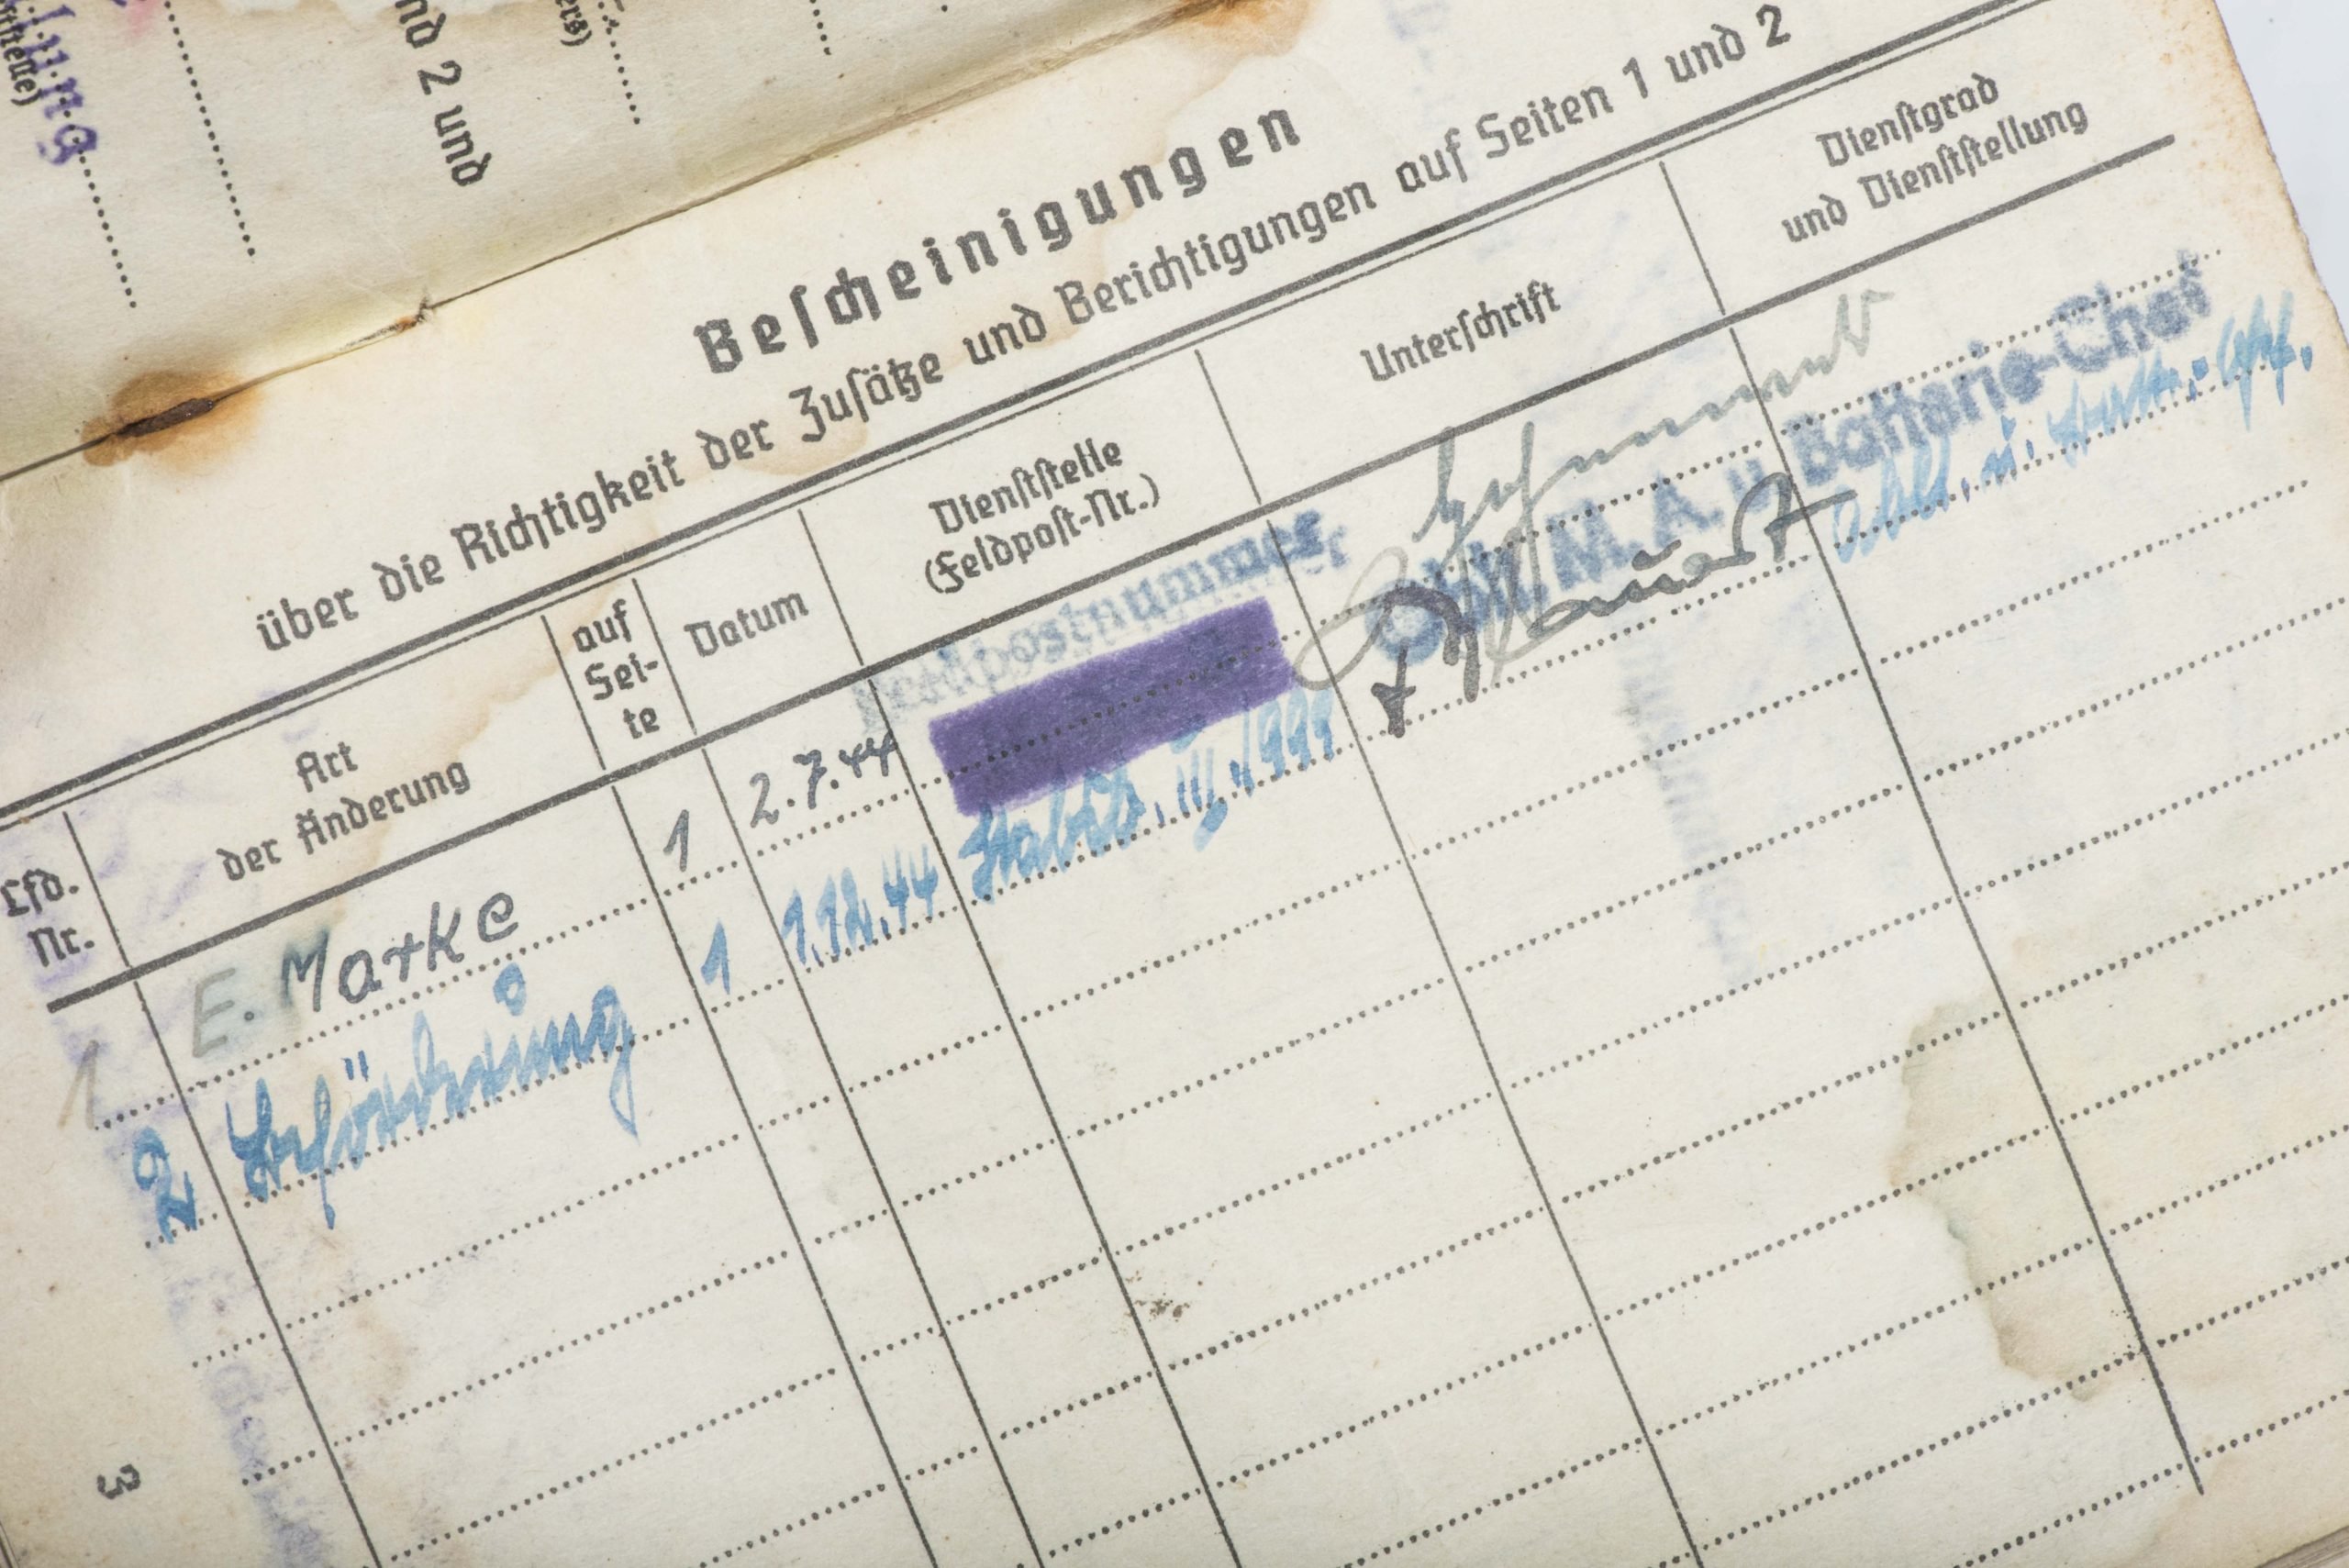 nd 2 und
Bescheinigungen
über die Richtigkeit der Zusätze und Berichtigungen auf Seiten 1 und 2
Lfd. Nr.
Art der Änderung
auf Sei- te
Datum
Dienststelle (Feldpost-Nr.)
Unterschrift
Dienstgrad und Dienststellung
1 E. Marke 1 2.7.44 Feldpostnummer
Oblt. M. A. u. Batterie-Chef
2 Beförderung 1 1.12.44 Stabsb. III./999
3